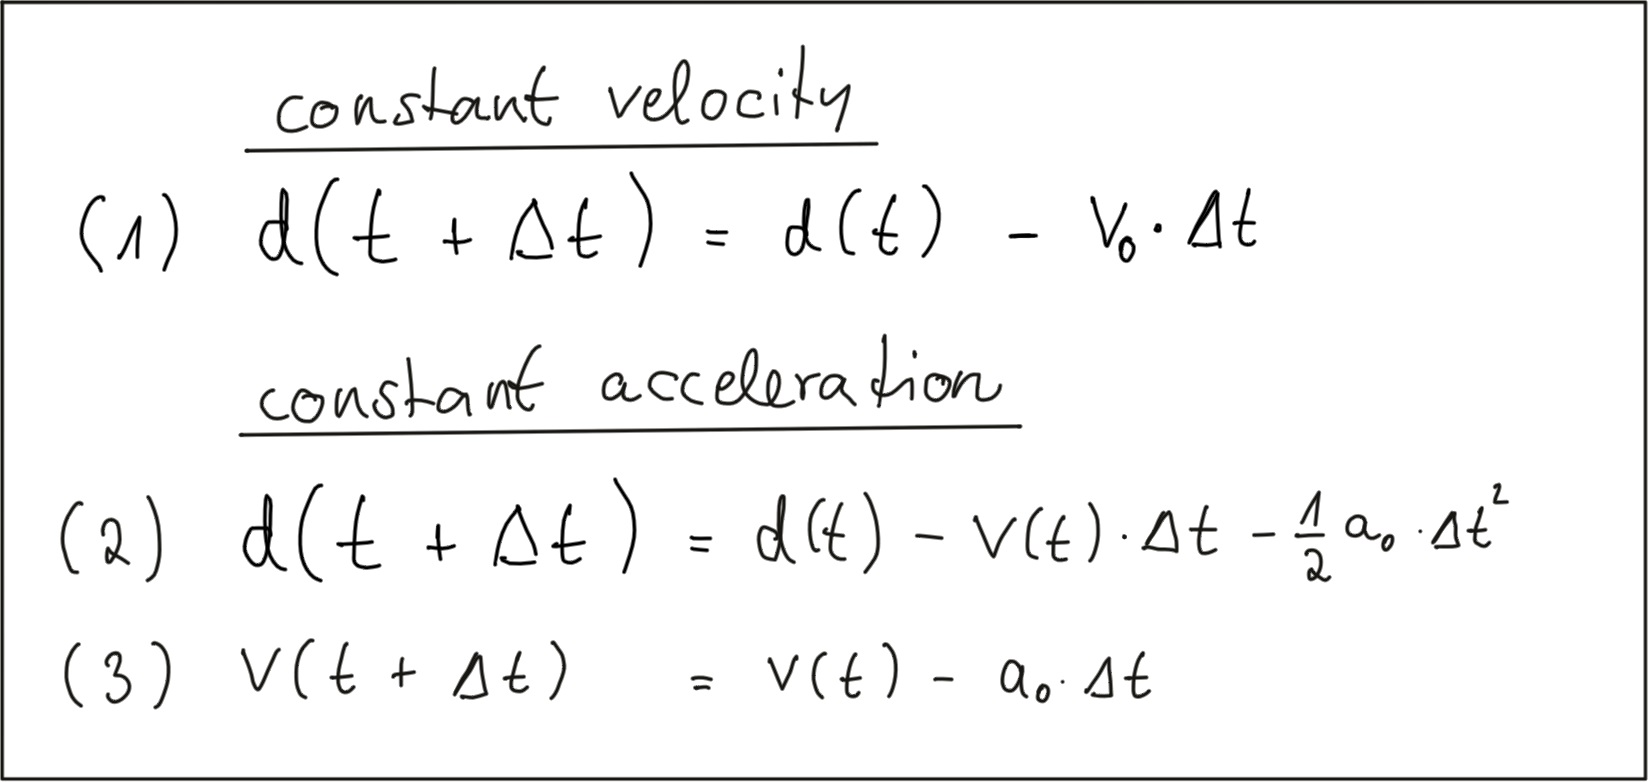 constant velocity
(1) d(t + Δt) = d(t) - V₀ · Δt
constant acceleration
(2) d(t + Δt) = d(t) - v(t) · Δt - 1/2 a₀ · Δt²
(3) v(t + Δt) = v(t) - a₀ · Δt